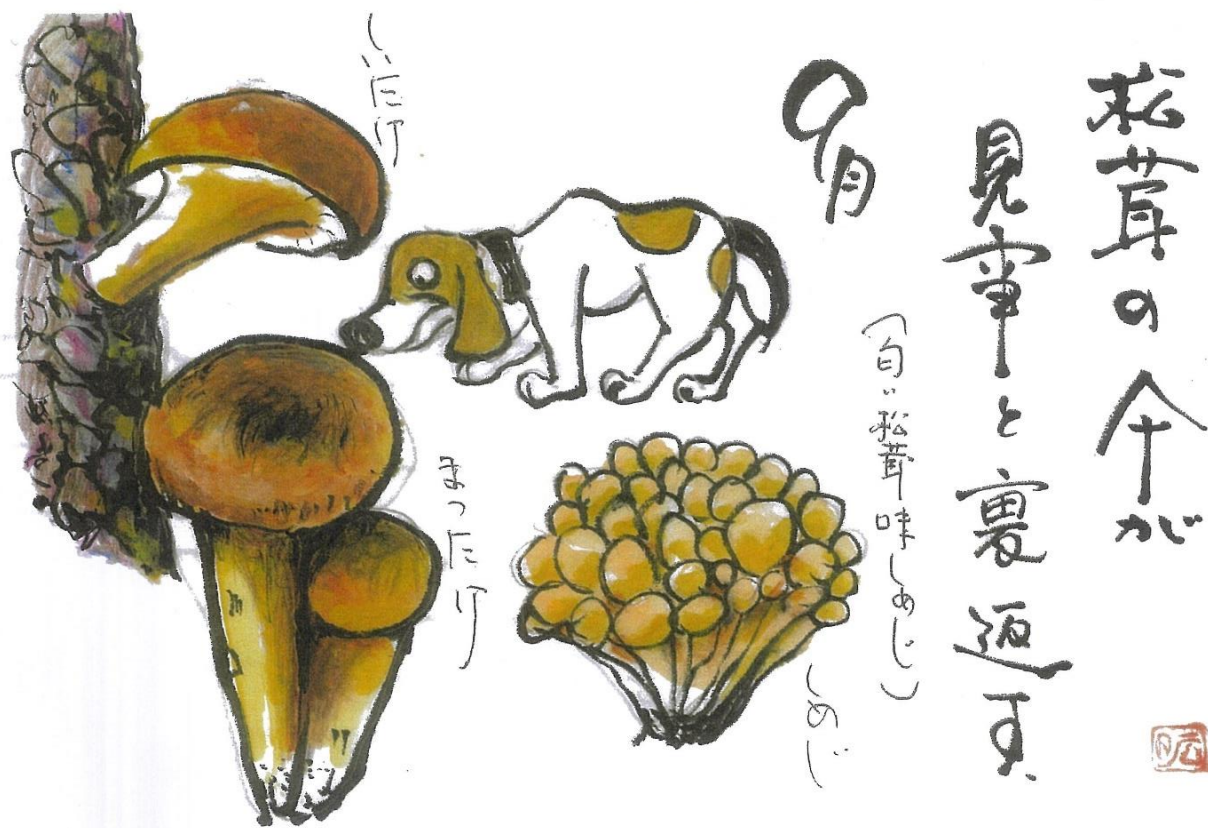 松茸の仐が
見事と裏返す
9月
(匂い松茸味しめじ)
しめじ
まつたけ
しいたけ